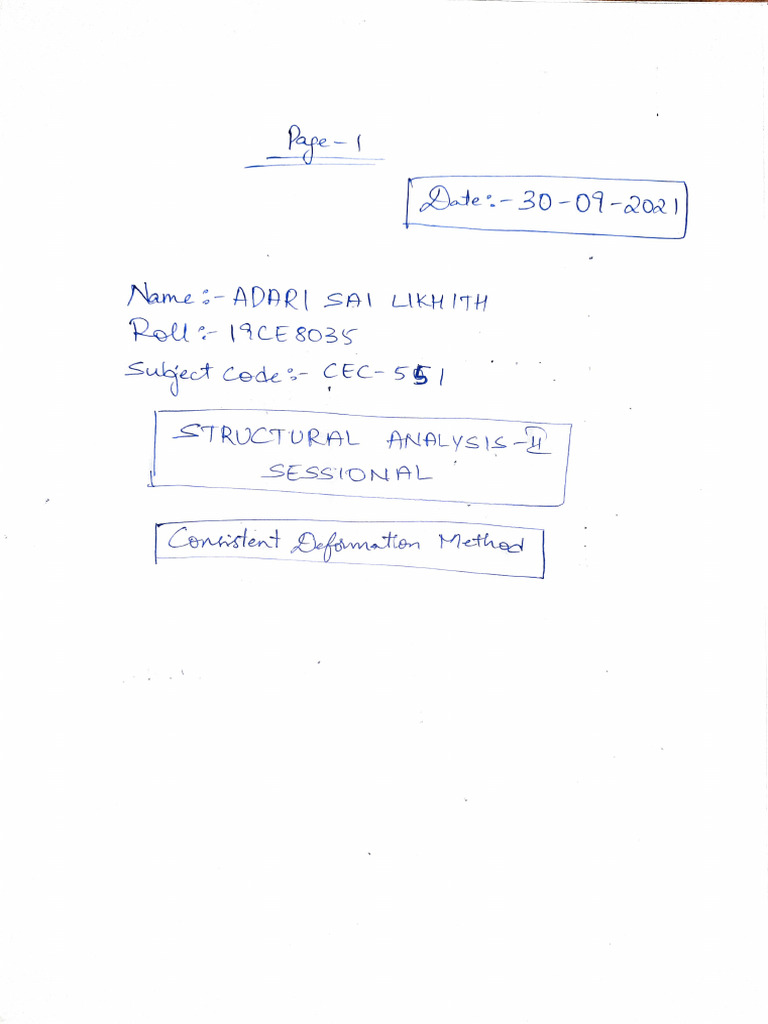 Page-1
Date:-30-09-2021
Name:-ADARI SAI LIKHITH
Roll:-19CE8035
Subject Code:- CEC-551
STRUCTURAL ANALYSIS-II
SESSIONAL
Consistent Deformation Method